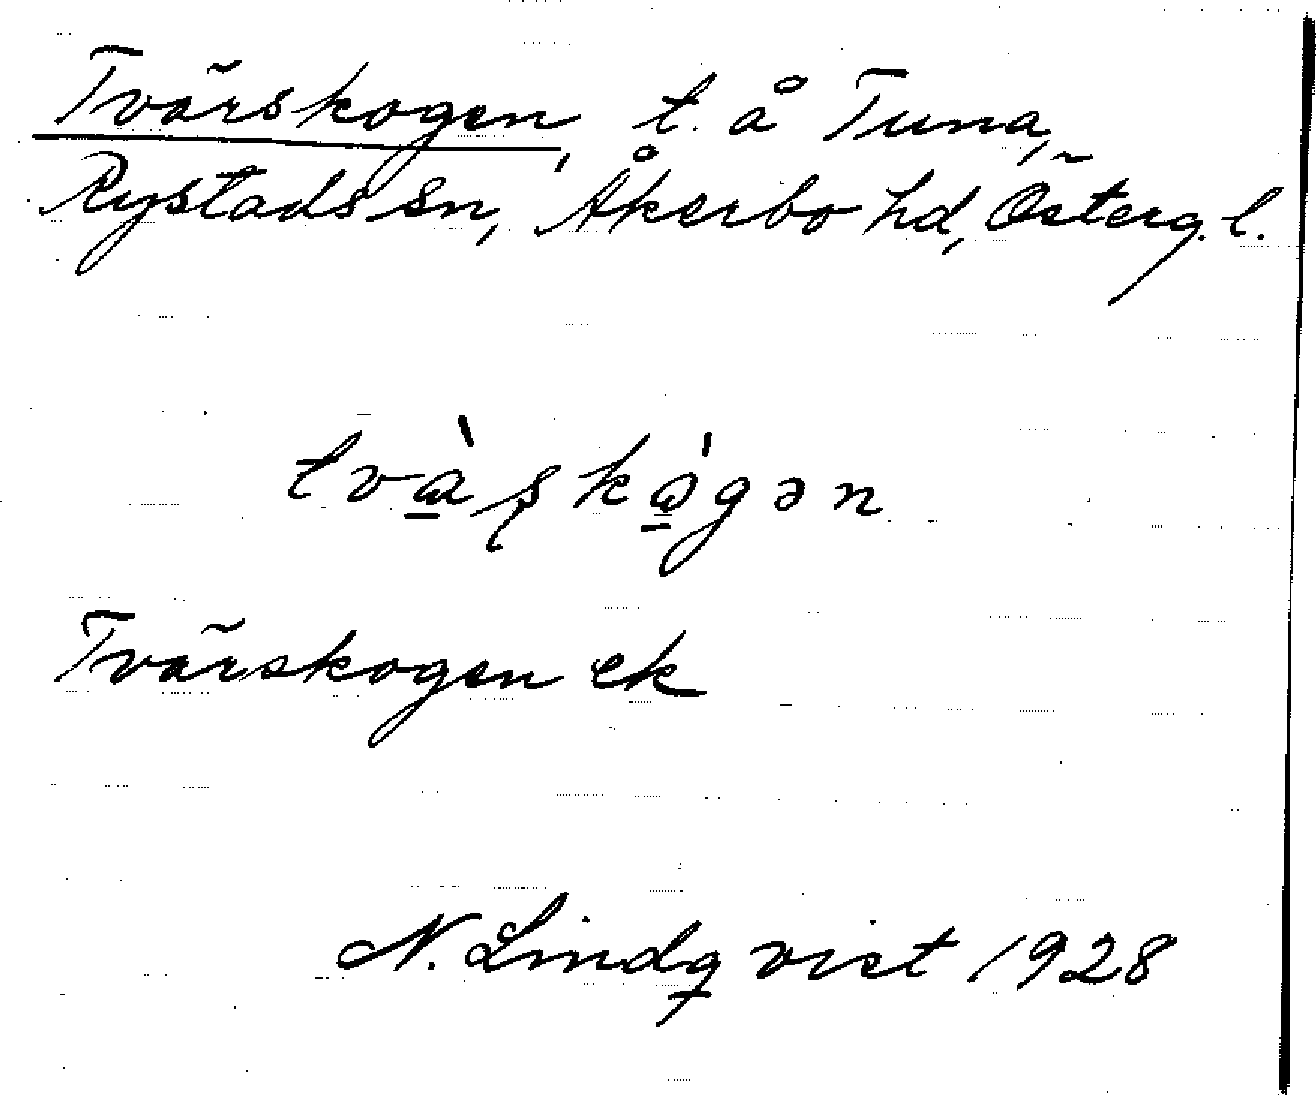 Tvärskogen, t. å Tuna,
Rystads sn, Åkerbo hd, Österg. l.
tvàṣkògən
Tvärskogen ek
N. Lindqvist 1928